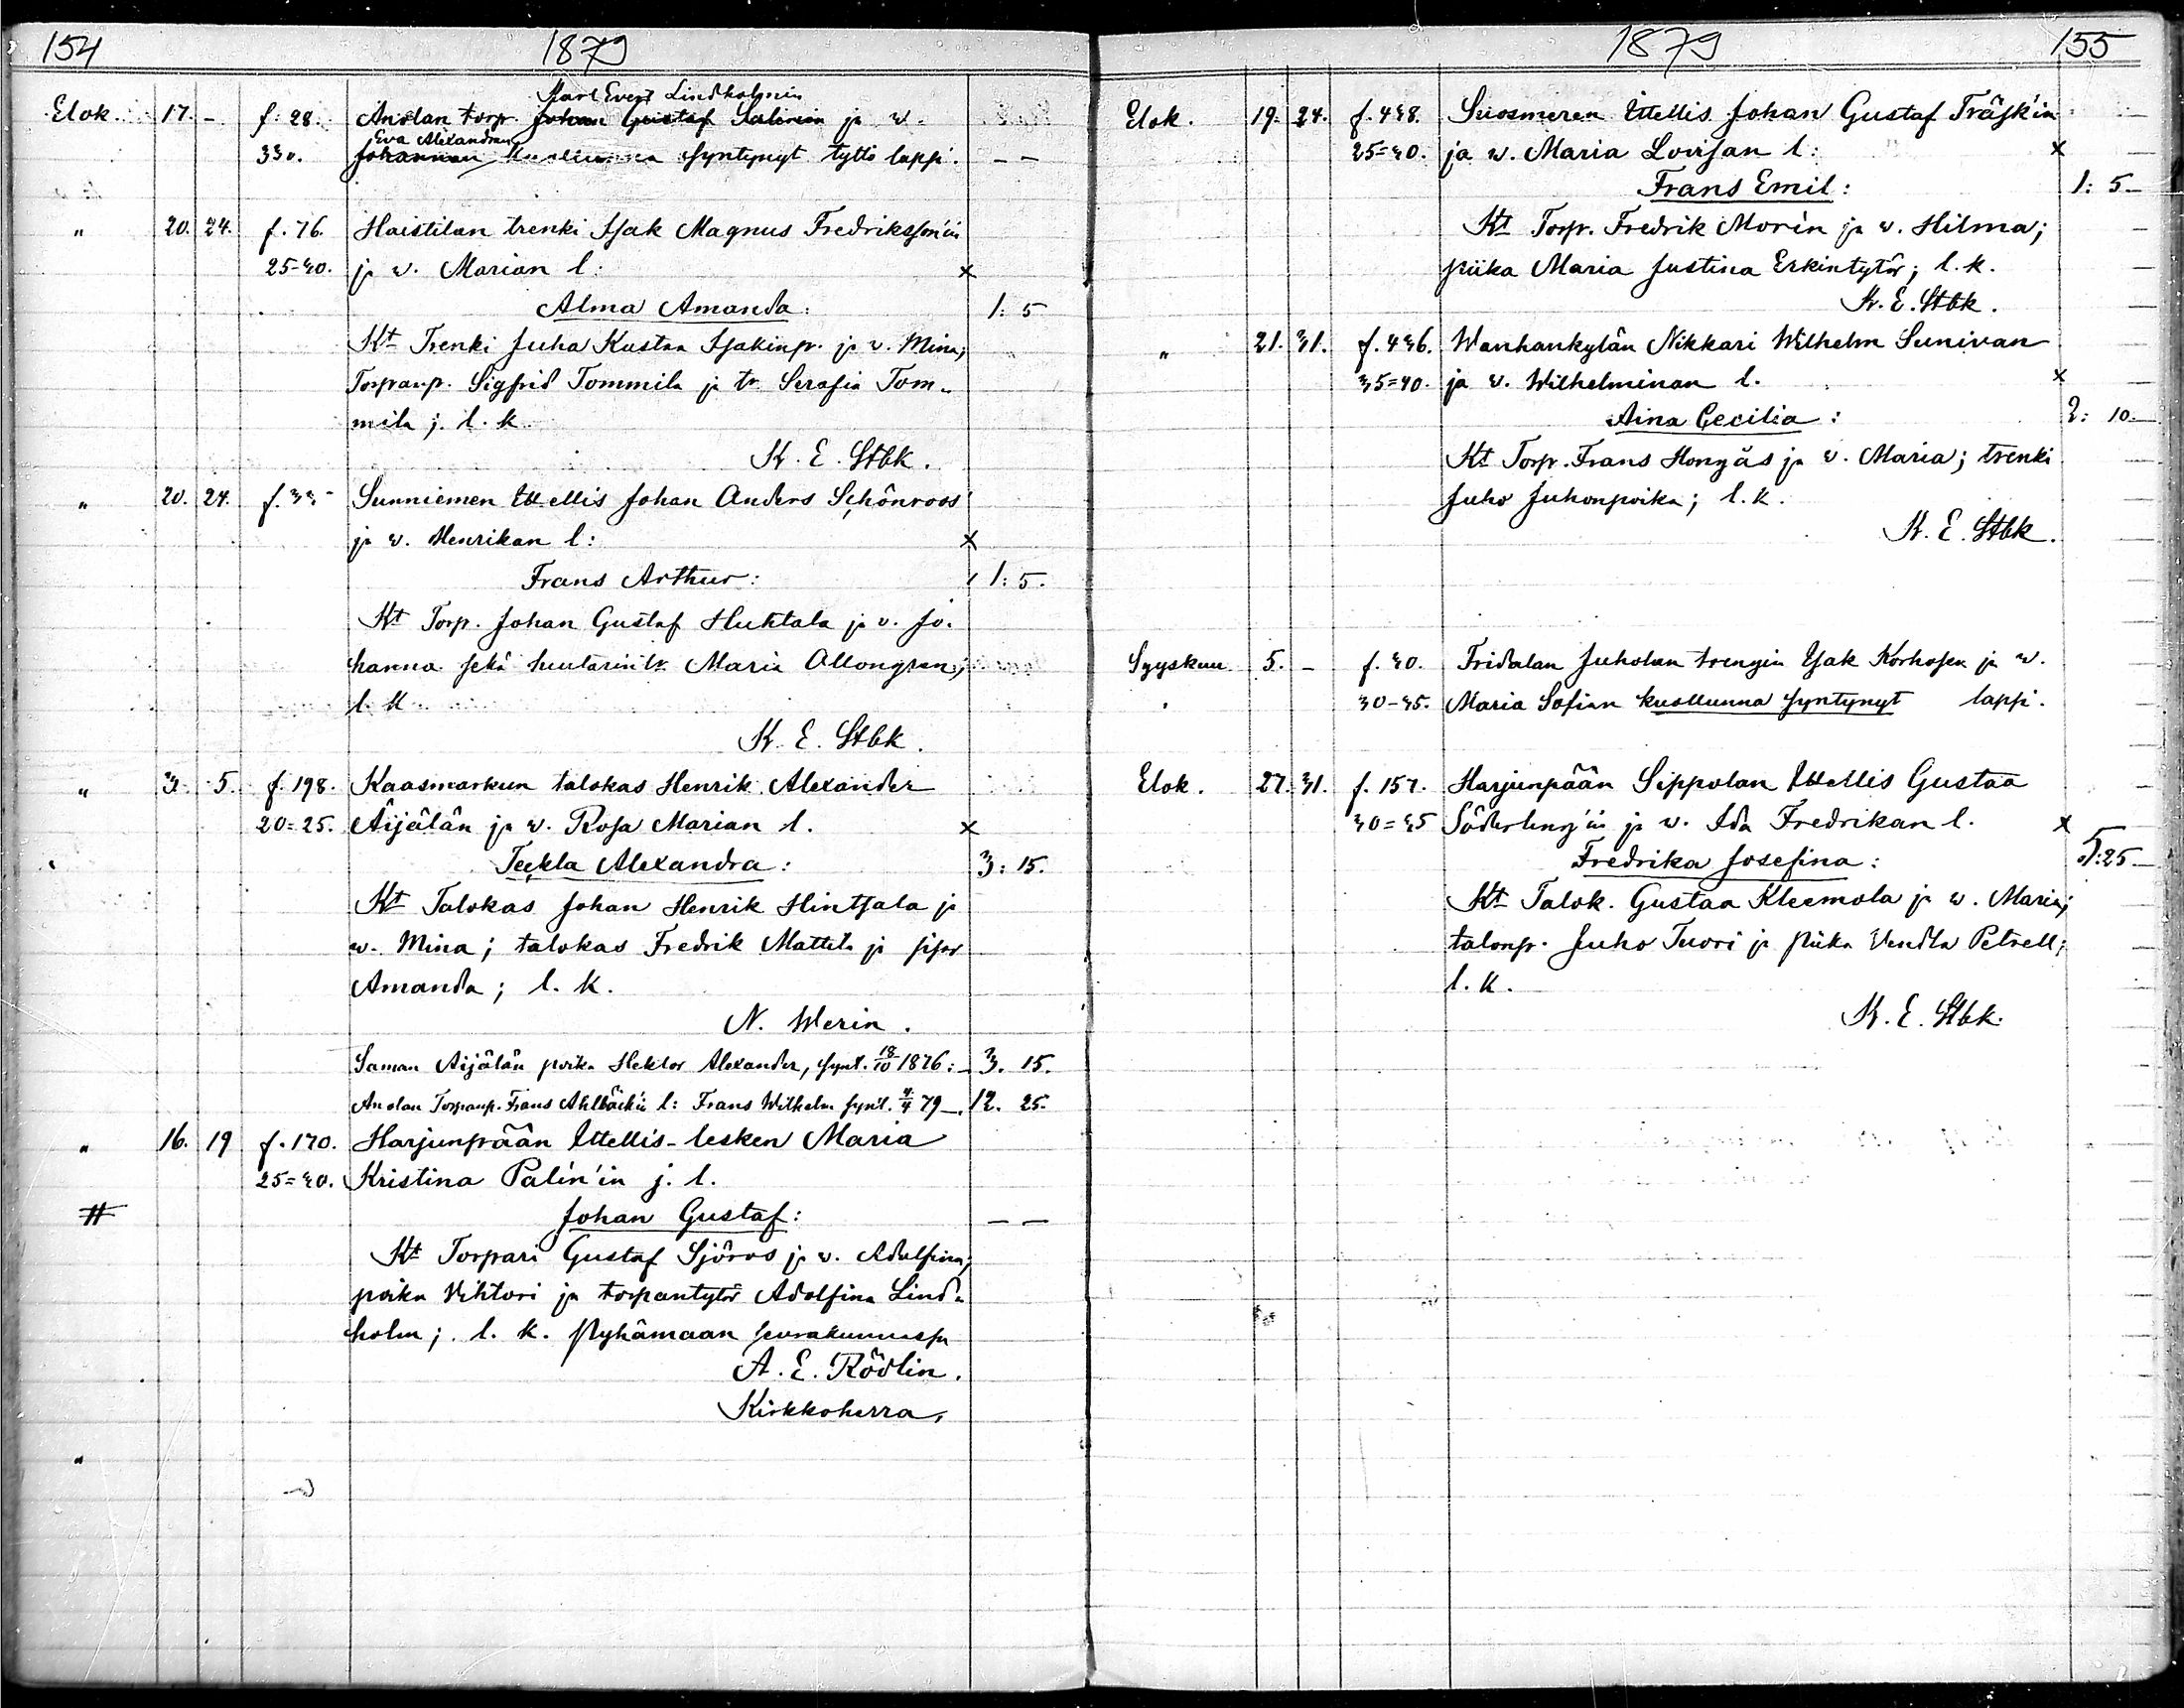 154 1879
Karl Evert Lindholmin
Elok. 17. - f. 28. Anolan torp. Johan Gustaf Salinin ja w.
Eva Alexandran
330. Johannan kuollunna syntynyt tyttö lapsi. — —
" 20. 24. f. 76. Haistilan trenki Isak Magnus Fredriksson'in
25-30. ja w. Marian l: x
Alma Amanda: 1: 5
Kt Trenki Juha Kustaa Isakinp. ja v. Mina;
Torpanp. Sigfrid Tommila ja tr. Serafia Tom-
mila; l. k.
K. E. Stbk.
" 20. 24. f. 33- Sunniemen Ittellis Johan Anders Schönroos
ja w. Henrikan l: x
Frans Arthur: 1: 5.
Kt Torp. Johan Gustaf Huhtala ja v. Jo-
hanna sekä Maria
l. k
K. E. Stbk.
" 3. 5. f. 198. Kaasmarkun talokas Henrik Alexander
20=25. Äijälän ja w. Rosa Marian l. x
Teckla Alexandra: 3: 15.
Kt Talokas Johan Henrik Hintsala ja
w. Mina; talokas Fredrik Mattila ja sisar
Amanda; l. k.
N. Werin.
Saman Äijälän poika Hektor Alexander, synt. 18/10 1876: - 3. 15.
Anolan Torpanp. Frans Ahlbäck'in l: Frans Wilhelm synt. 79 -. 12. 25.
" 16. 19 f. 170. Harjunpään Ittellis-lesken Maria
25=30. Kristina Palin'in j. l.
# Johan Gustaf: — —
Kt Torpari Gustaf Sjöros ja w. Adolfina;
poika Vihtori ja torpantytär Adolfina Lind-
holm; l. k. Pyhämaan seurakunnassa
A. E. Rödlin.
Kirkkoherra.
"
1879 155
Elok. 19. 24. f. 438. Suosmeren Ittellis Johan Gustaf Träsk'in
25=30. ja w. Maria Lovisan l: x
Frans Emil: 1: 5-
Kt Torp. Fredrik Morin ja w. Hilma;
piika Maria Justina Erkintytär; l. k.
K. E. Stbk.
" 21. 31. f. 436. Wanhankylän Nikkari Wilhelm Sunivan
35=40. ja w. Wilhelminan l. x
Aina Cecilia: 2: 10.
Kt Torp. Frans Hongås ja w. Maria; trenki
Juho Juhonpoika; l. k.
K. E. Stbk.
Syyskuu 5. - f. 30. Fridalan Juholan trengin Isak Korhosen ja w.
30-35. Maria Sofian kuollunna syntynyt lapsi.
Elok. 27. 31. f. 157. Harjunpään Sippolan Ittellis Gustaa
30=35 Söderling'in ja w. Ida Fredrikan l. x
Fredrika Josefina: 5: 25
Kt Talok. Gustaa Kleemola ja w. Maria;
talonp. Juho Tuori ja piika Vendla Petrell;
l. k.
K. E. Stbk.